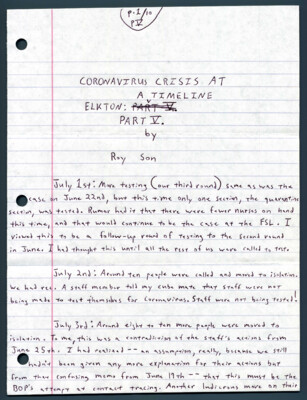 P. 1/10
PV
CORONAVIRUS CRISIS AT
A TIMELINE
ELKTON: PART V.
PART V.
by
Roy Son
July 1st: More testing (our third round) same as was the
case on June 22nd, but this time only one section, the quarantine
section, was tested. Rumor had it that there were fewer nurses on hand
this time, and that would continue to be the case at the FSL. I
viewed this to be a follow-up round of testing to the second round
in June. I had thought this until all the rest of us were called to test.
July 2nd: Around ten people were called and moved to isolation.
We had rec. A staff member told my cube mate that staff were not
being made to test themselves for Coronavirus. Staff were not being tested!
July 3rd: Around eight to ten more people were moved to
isolation. To me, this was a contradiction of the staff's actions from
June 25th. I had realized -- an assumption, really, because we still
hadn't been given any more explanation for their actions but
from that confusing memo from June 19th -- that this must be the
BOP's attempt at contact tracing. Another ludicrous move on their